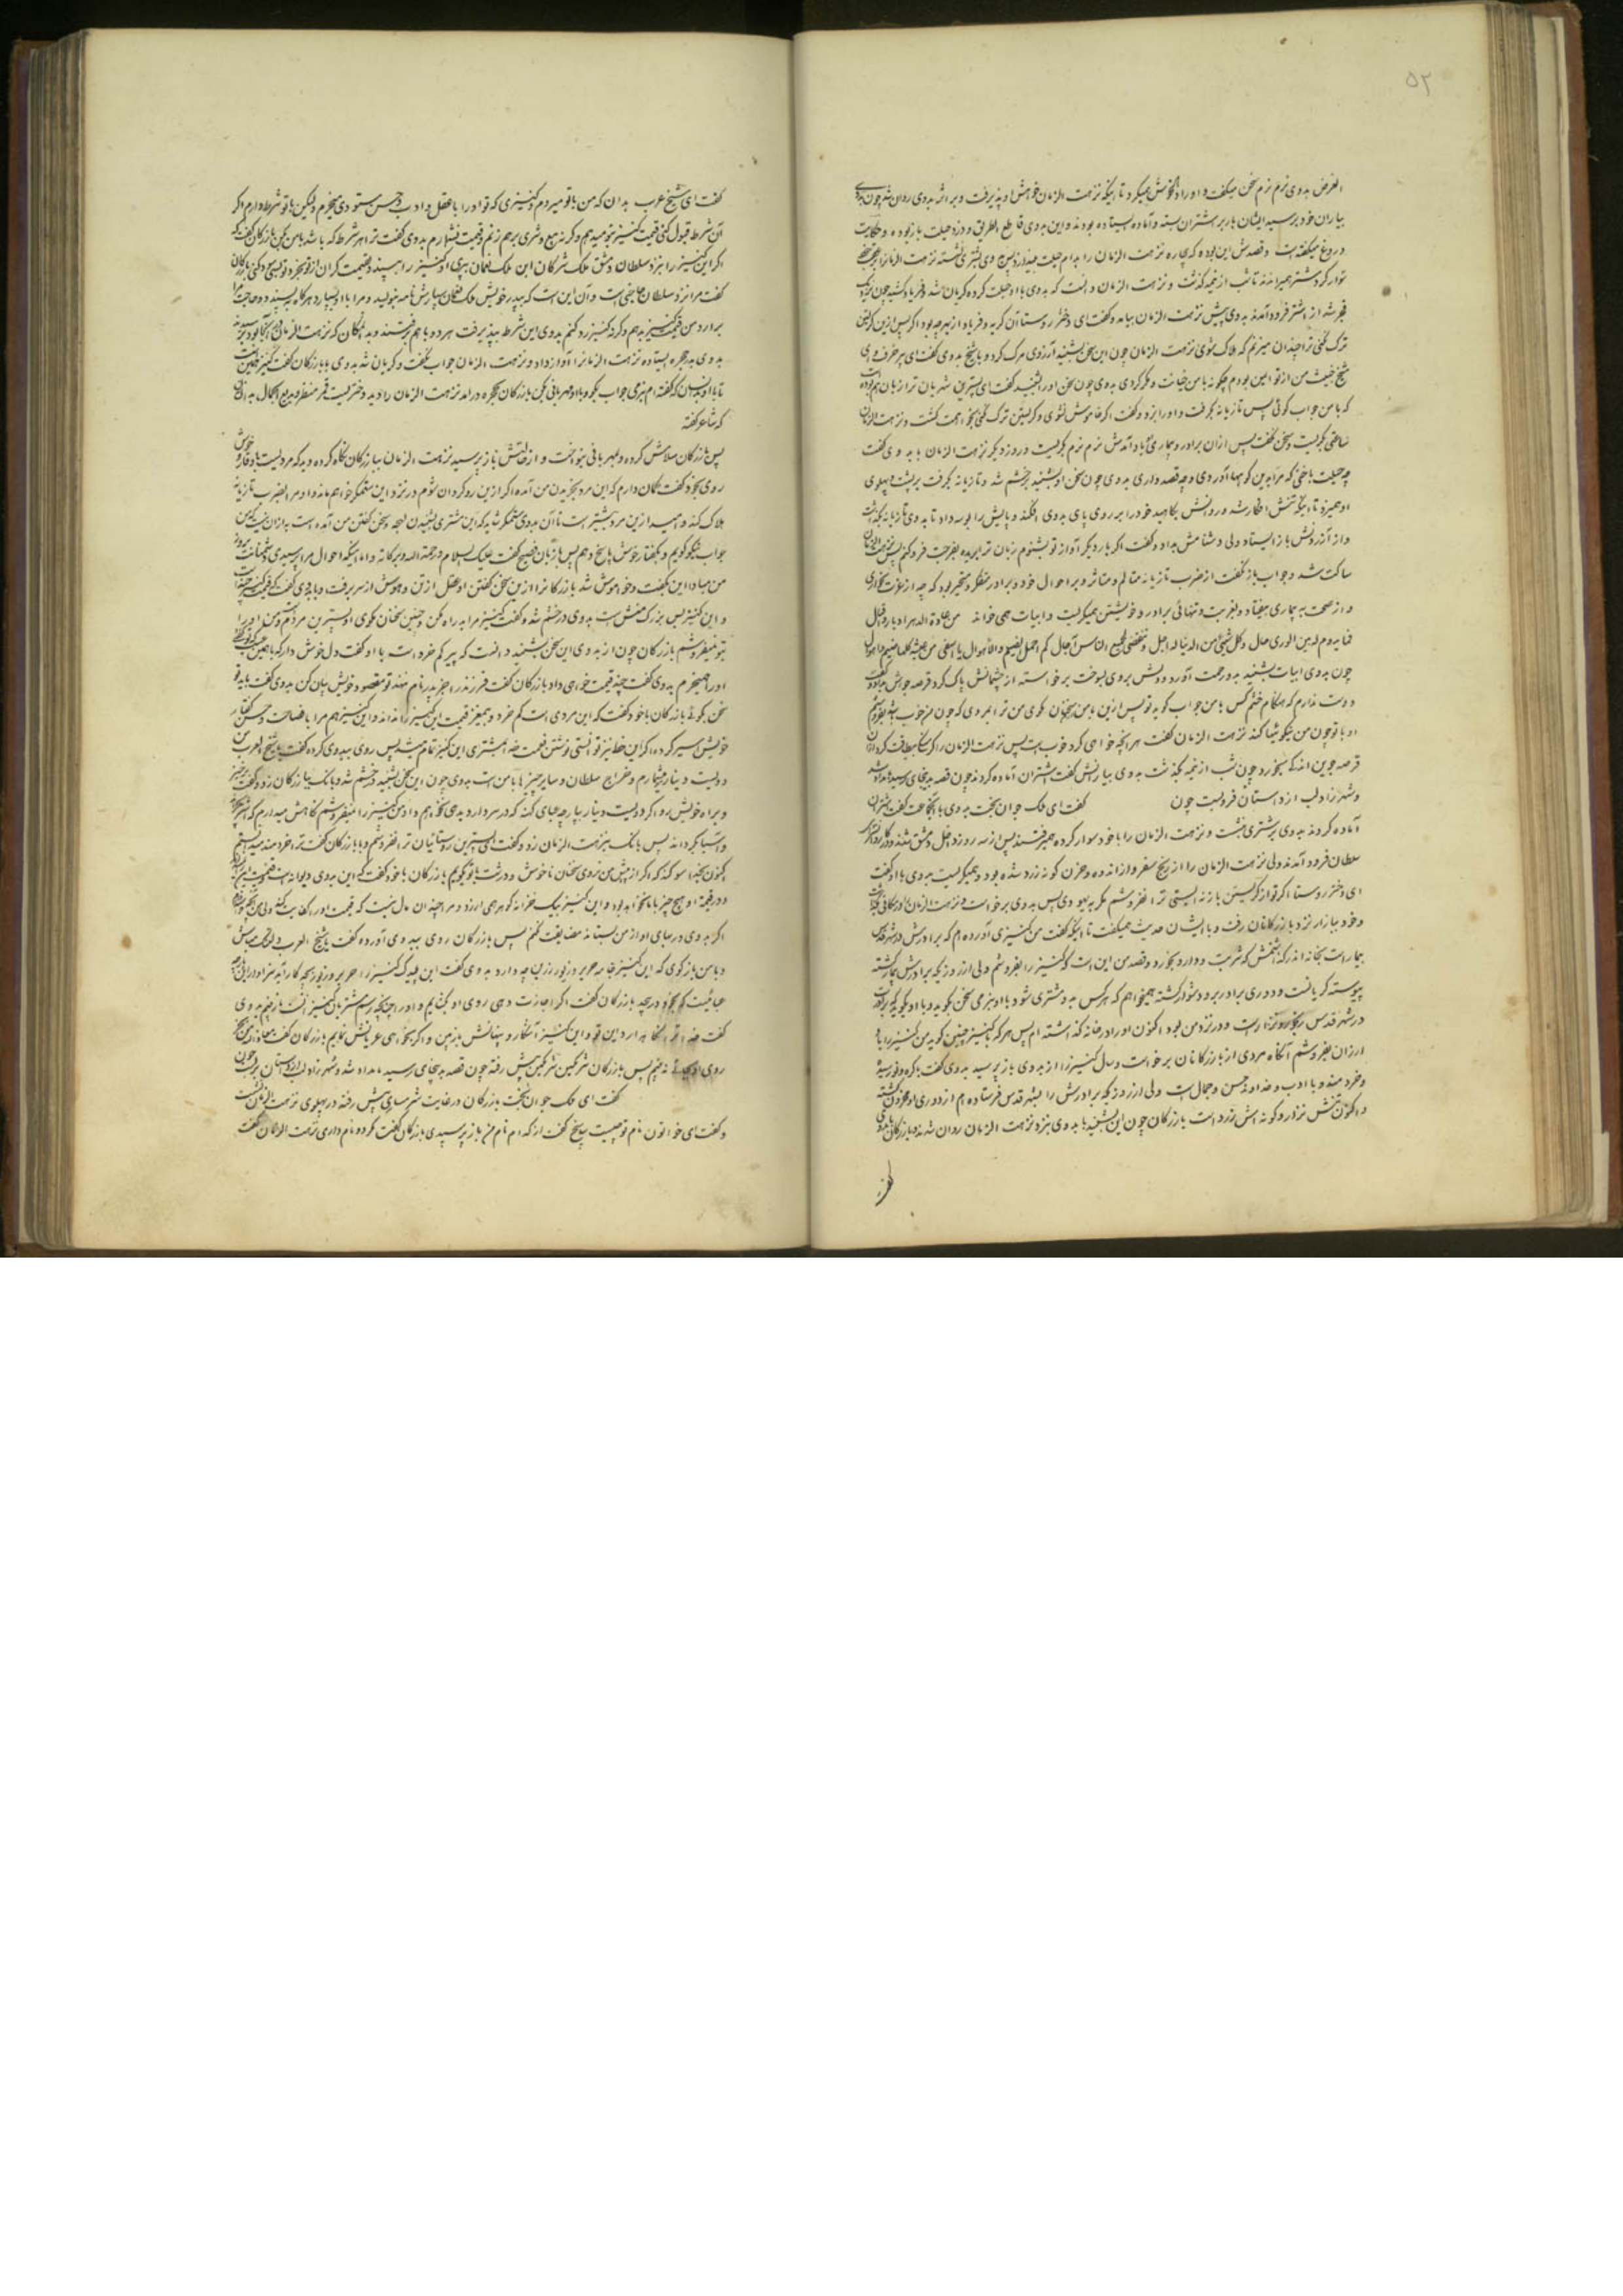 ۵۲
الغرض بدوی نرم نرم سخن میگفت و او را دلخوش میکرد تا اینکه نزهت الزمان خواهش او بپذیرفت و بر اثر بدوی روان شد چون بدوی
بیاران خود برسید ایشان بار بر اشتران بسته و آماده ایستاده بودند و این بدوی قاطع الطریق و دزد حیلت باز بوده و حکایت
دروغ میگفته است و قصدش این بوده که بیچاره نزهت الزمان را بدام حیلت بیندازد پس بدوی بشتری نشسته نزهت الزمان را
سوار کرد و شتر همیراندند تا شب از نیمه گذشت و نزهت الزمان دانست که بدوی با او حیلت کرده گریان شد و فریاد کشید چون نزدیک
فجر شد از اشتر فرود آمدند بدوی پیش نزهت الزمان بیامد و گفت ای دختر روستا این گریه و فریاد از بهر چه بود اگر پس ازین گریستن
ترک نکنی ترا چندان میزنم که هلاک شوی نزهت الزمان چون این سخن بشنید آرزوی مرگ کرد و بپاسخ بدوی گفت ای پیر خرف و ای
شیخ خبیث من از تو ایمن بودم چگونه با من خیانت و مکر کردی بدوی چون سخن او را بشنید گفت ای پست‌ترین شهریان ترا زبان هم بوده
که با من جواب گوئی پس تازیانه بگرفت و او را بزد و گفت اگر خاموش نشوی و گریستن ترک نکنی بخواهمت کشت و نزهت الزمان
ساعتی بگریست و سخن نگفت پس از آن برادر و بیماری او بیاد آمدش نرم نرم گریست و روز دیگر نزهت الزمان با بدوی گفت
چه حیلت باختی که مرا بدین کوهها آوردی و چه قصد داری بدوی چون سخن او بشنید بخشم شد و تازیانه بگرفت بر پشت و پهلوی
او همیزد تا اینکه تنش افکار شد و روانش بکاهید خود را بر روی پای بدوی افکند و پایش را بوسه داد تا بدوی تازیانه بگذاشت
و از آزردنش باز ایستاد ولی دشنامش بداد و گفت اگر بار دیگر آواز تو بشنوم زبان ترا بریده بفرجت فرو کنم پس نزهت الزمان
ساکت شد و جواب باز نگفت از ضرب تازیانه متالم و متاثر و بر احوال خود و برادر متفکر و متحیر بود که چه از عزت بخواری
و از صحت به بیماری بیفتاد و بغربت و تنهائی برادر و خویشتن همیگریست و ابیات همی خواند من عادة الدهر ادبار و اقبال
فما یدوم لدین الوری حال و کل شیئ من الدنیا له اجل و تنقضی لجمیع الناس آجال کم احمل الضیم و الاهوال یا اسفی من عیشة کلها ضیم و اهوال
چون بدوی ابیات بشنید بر او رحمت آورد و دلش بروی بسوخت برخاسته از چشمانش پاک کرد قرصه جوینش بداد و گفت
دوست ندارم که هنگام خشم کس با من جواب گوید تو پس ازین با من سخنان مگوی من ترا بمردی که چون من خوب باشد بفروشم
او با تو چون من نیکوئیها کند نزهت الزمان گفت هر آنچه خواهی کرد خوب است پس نزهت الزمان را گرسنگی بیطاقت کرد از آن
قرصه جوین اندکی بخورد چون شب از نیمه بگذشت بدوی بیارانش گفت شتران آماده کردند چون قصه بدینجا رسید بامداد شد
و شهرزاد لب از داستان فرو بست چون گفت ای ملک جوان بخت بدوی با جماعت گفت شتران
آماده کردند بدوی بر شتری بنشست و نزهت الزمان را با خود سوار کرده همیرفتند پس از سه روز داخل دمشق شدند و در کاروانسرای
سلطان فرود آمدند ولی نزهت الزمان را از رنج سفر و از اندوه و حزن گونه زرد شده بود و همیگریست بدوی با او گفت
ای دختر روستا اگر تو از گریستن باز نه ایستی ترا نفروشم مگر به یهودی پس بدوی برخاست و نزهت الزمان را در مکانی بگذاشت
و خود ببازار نزد بازرگانان رفت و با ایشان حدیث همیگفت تا اینکه گفت من کنیزی آورده‌ام که برادرش در شهر قدس
بیمار است بخانه اندر گذاشتمش که شربت و دارو بخورد و قصد من این است که کنیز را بفروشم ولی از روزیکه برادرش بیمار گشته
پیوسته گریانست و دوری برادر بر او دشوار گشته میخواهم که هر کس بدو مشتری شود با او بنرمی سخن گوید و با او بگوید که برادرت
در شهر قدس رنجور و نزار است و در نزد من بود اکنون او را در خانه گذاشته‌ام پس هر که با کنیز چنین گوید من کنیز را باو
ارزان بفروشم آنگاه مردی از بازرگانان برخاست و سال کنیز را از بدوی باز پرسید بدوی گفت باکره و نورسیده
و خردمند و با ادب و خداوند حسن و جمال است ولی از روزیکه برادرش را بشهر قدس فرستاده‌ام از دوری او محزون گشته
و اکنون تنش نزار و گونه‌اش زرد است بازرگان چون این بشنید با بدوی بنزد نزهت الزمان روان شدند بازرگان با بدوی
گفت
گفت ای شیخ عرب بدان که من با تو میروم و کنیزی که تو او را با عقل و ادب و حسن ستودی میخرم ولیکن با تو شرطی دارم اگر
آن شرط قبول کنی قیمت کنیز بتو میدهم وگرنه بیع و شری برهم زنم و قیمت نشمارم بدوی گفت ترا هر شرط که باشد با من بگو بازرگان گفت که
اگر این کنیز را بنزد سلطان دمشق ملک شرکان ابن ملک نعمان بری او کنیز را بپسندد و بقیمت گران از تو بخرد و تو بسی سود کنی بازرگان
گفت مرا نزد سلطان حاجتی است و آن این است که بپدر خویش ملک نعمان سپارش نامه بنویسد و مرا باو بسپارد هرگاه بپسندد و حاجت مرا
برآرد من قیمت کنیز بدهم وگرنه کنیز رد کنم بدوی این شرط بپذیرفت هر دو با هم برفتند و بدان مکان که نزهت الزمان در آنجا بود برسیدند
بدوی بدر حجره بایستاده نزهت الزمان را آواز داد و نزهت الزمان جواب نگفت و گریان شد بدوی با بازرگان گفت کنیز همین است
تا با او بدانسان که گفته‌ام بنرمی جواب بگو و با او مهربانی بکن بازرگان بحجره درآمد نزهت الزمان را دید دختریست قمر منظر و بدیع الجمال بدانسان
که شاعر گفته
پس بازرگان سلامش کرده و بمهربانی بنواخت و از حالتش باز پرسید نزهت الزمان ببازرگان نگاه کرده دید که مردیست باوقار و خوش
روی بخود گفت گمان دارم که این مرد بخریدن من آمده اگر ازین روگردان شوم در نزد این ستمگر خواهم ماند او مرا بضرب تازیانه
هلاک کند و امید ازین مرد بیشتر است تا آن بدوی ستمگر شاید که این مشتری بشنیدن لهجه و سخن گفتن من آمده است به از آن نیست که من
جواب نیکو گویم و بگفتار خوش پاسخ دهم پس با زبان فصیح گفت علیک السلام و رحمة الله و برکاته و اما اینکه احوال مرا پرسیدی
من مبادا این بگفت و خاموش شد بازرگان را ازین سخن گفتن او عقل از تن و هوش از سر برفت و با بدوی گفت که قیمت کنیز چند است
و این کنیز بس بزرگ منش است بدوی در خشم شد و گفت کنیز مرا بد راه مکن و چنین سخنان مگوی او پست‌ترین مردم است من او را
بتو نمیفروشم بازرگان چون از بدوی این سخن بشنید دانست که پیر کم خرد است با او گفت دل خوش دار که با همین عیب که تو گفتی
او را همیخرم بدوی گفت چند قیمت خواهی داد بازرگان گفت فرزند را بجز پدر نام ننهد تو مقصود خویش بیان کن بدوی گفت باید تو
سخن بگوئی بازرگان با خود گفت که این مردی است کم خرد و بیمغز قیمت این کنیز را نداند و این کنیز هم مرا با فصاحت و حسن گفتار
خویش اسیر کرده اگر این خط نیز توانستی نوشتن نعمت خدا بمشتری این کنیز تمام شد پس روی ببدوی کرده گفت یا شیخ العرب من
دویست دینار میشمارم و خراج سلطان و سایر چیزها با من است بدوی چون این سخن بشنید در خشم شد و بانک ببازرگان زد و گفت برخیز
و براه خویش رو اگر دویست دینار بپارچه عبای کهنه که در بر دارد بدهی نخواهم داد من کنیز را نمیفروشم نگاهش میدارم که شتر بچراند
و آسیا گرداند پس بانک بنزهت الزمان زد و گفت ای پست‌ترین روستائیان ترا نفروشم و با بازرگان گفت ترا خردمند میدانستم
اکنون بخدا سوگند که اگر از پیش من نروی سخنان ناخوش و درشت با تو گویم بازرگان با خود گفت که این بدوی دیوانه است
و در قیمت او هیچ چیز با ما نخواهد بود و این کنیز بیک خزانه گوهر می ارزد و مرا چندان مال نیست که قیمت او را کفایت کند ولی من میخرم
اگر بدوی در بهای او از من بستاند مضایقت نکنم پس بازرگان روی ببدوی آورده گفت یا شیخ العرب دل تنگ مباش
و با من باز گوی که این کنیز جامه حریر و زیور زرین چه دارد بدوی گفت این پلیدک کنیز را حریر و زیور بچه کار آید سزاوار این
عبائیست که بخود در پیچد بازرگان گفت اگر اجازت دهی روی او بگشایم و او را چنانکه رسم مشتریان کنیز است باز بینم بدوی
گفت خدا ترا نگاه دارد این تو و این کنیز آشکار و پنهانش بازبین و اگر بخواهی عریانش نمایم بازرگان گفت معاذ الله من بجز
روی او جائی نه بینم پس بازرگان شرمگین شرمگین پیش رفته چون قصه بدینجا رسید بامداد شد و شهرزاد لب از داستان فرو بست چون
گفت ای ملک جوان بخت بازرگان در غایت شرمساری پیش رفته در پهلوی نزهت الزمان بنشست
و گفت ای خواتون نام تو چیست بپاسخ گفت از کدام نام من باز پرسیدی بازرگان گفت مگر دو نام داری نزهت الزمان گفت